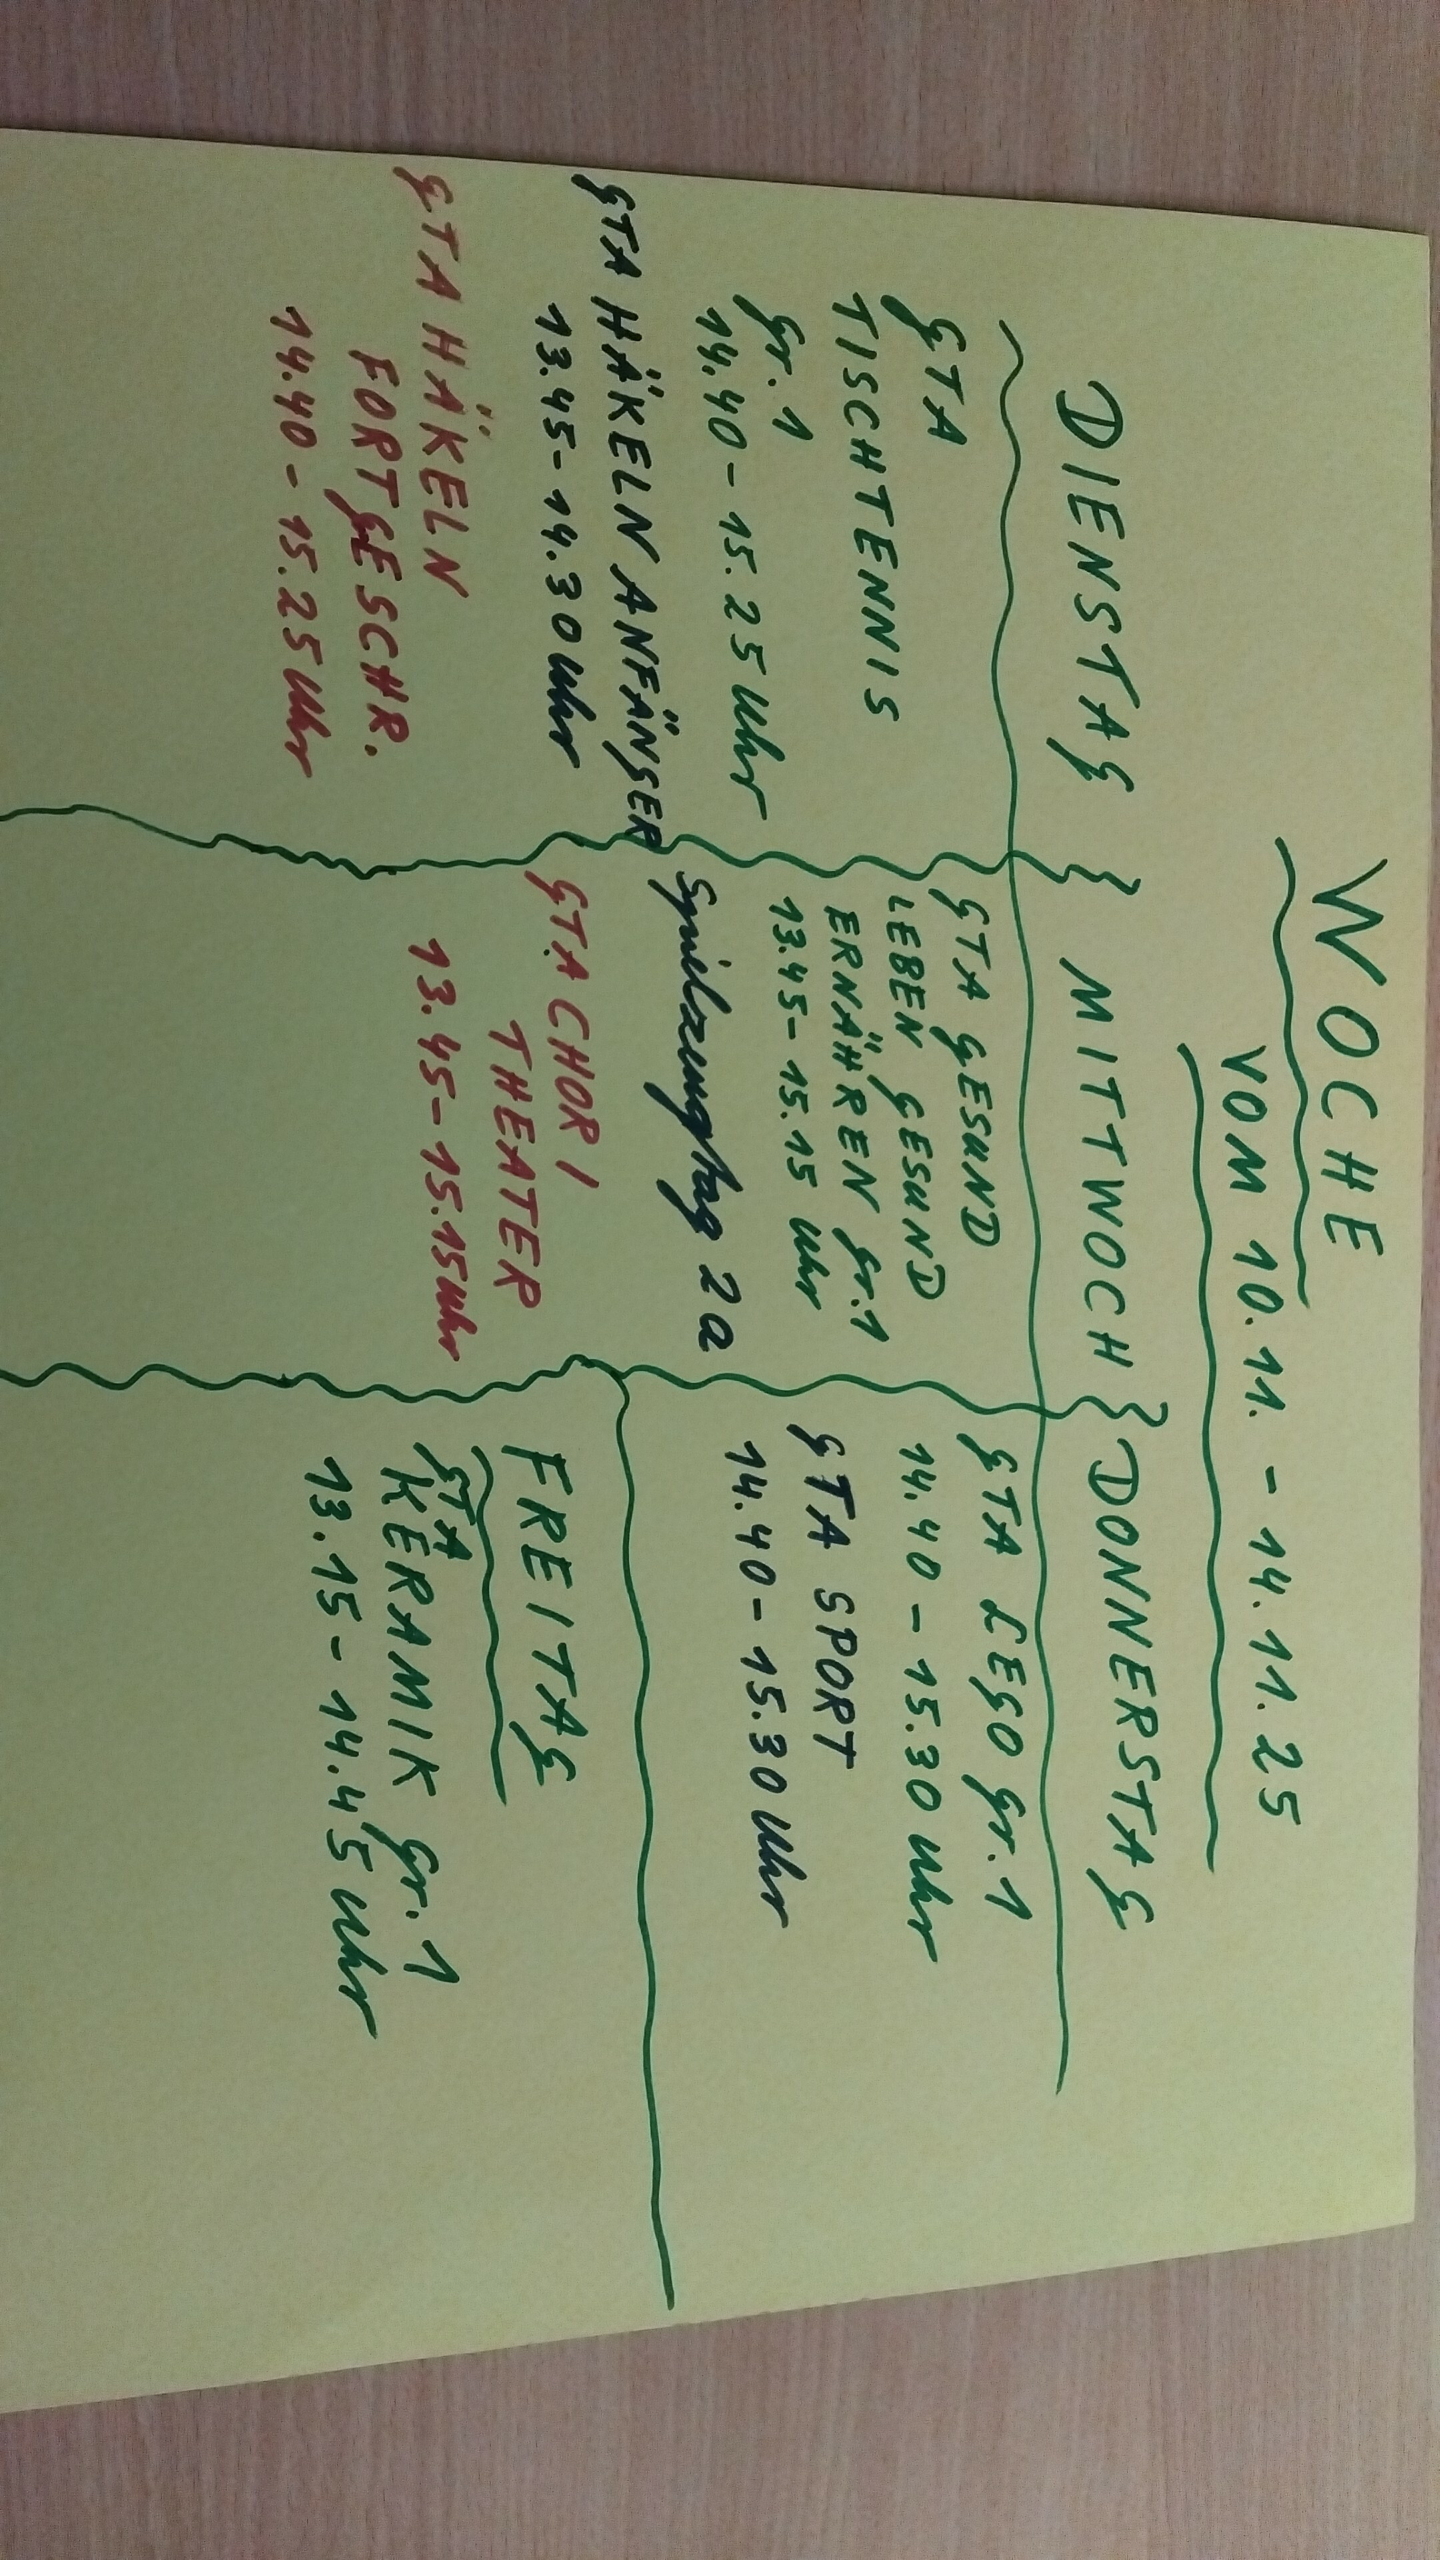 WOCHE
VOM 10.11. - 14.11.25
DIENSTAG
GTA
TISCHTENNIS
Gr. 1
14.40 - 15.25 Uhr
GTA HÄKELN ANFÄNGER
13.45 - 14.30 Uhr
GTA HÄKELN
FORTGESCHR.
14.40 - 15.25 Uhr
MITTWOCH
GTA GESUND
LEBEN GESUND
ERNÄHREN Gr. 1
13.45 - 15.15 Uhr
Spielzeugtag 2a
GTA CHOR /
THEATER
13.45 - 15.15 Uhr
DONNERSTAG
GTA LEGO Gr. 1
14.40 - 15.30 Uhr
GTA SPORT
14.40 - 15.30 Uhr
FREITAG
GTA
KERAMIK Gr. 1
13.15 - 14.45 Uhr